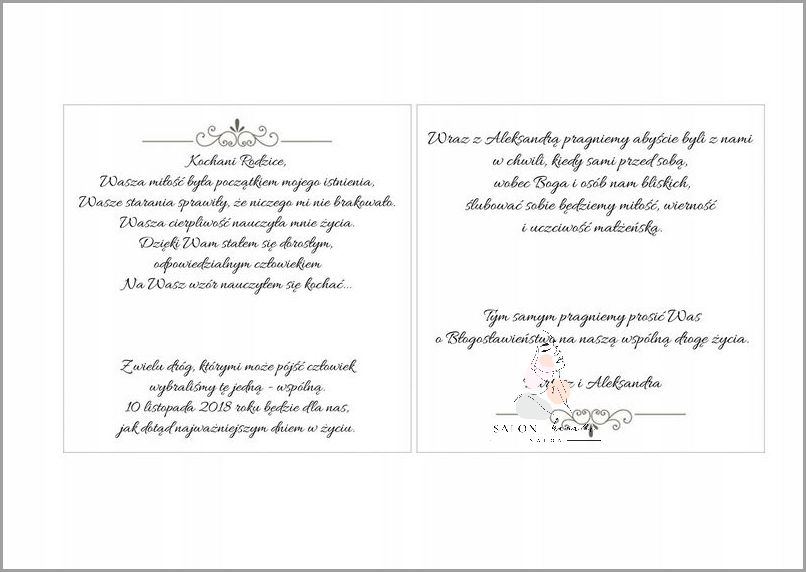 Kochani Rodzice,
Wasza miłość była początkiem mojego istnienia,
Wasze starania sprawiły, że niczego mi nie brakowało.
Wasza cierpliwość nauczyła mnie życia.
Dzięki Wam stałem się dorosłym,
odpowiedzialnym człowiekiem
Na Wasz wzór nauczyłem się kochać...
Z wielu dróg, którymi może pójść człowiek
wybraliśmy tę jedną - wspólną.
10 listopada 2018 roku będzie dla nas,
jak dotąd najważniejszym dniem w życiu.
Wraz z Aleksandrą pragniemy abyście byli z nami
w chwili, kiedy sami przed sobą,
wobec Boga i osób nam bliskich,
ślubować sobie będziemy miłość, wierność
i uczciwość małżeńską.
Tym samym pragniemy prosić Was
o Błogosławieństwo na naszą wspólną drogę życia.
i Aleksandra
SALON
SALON